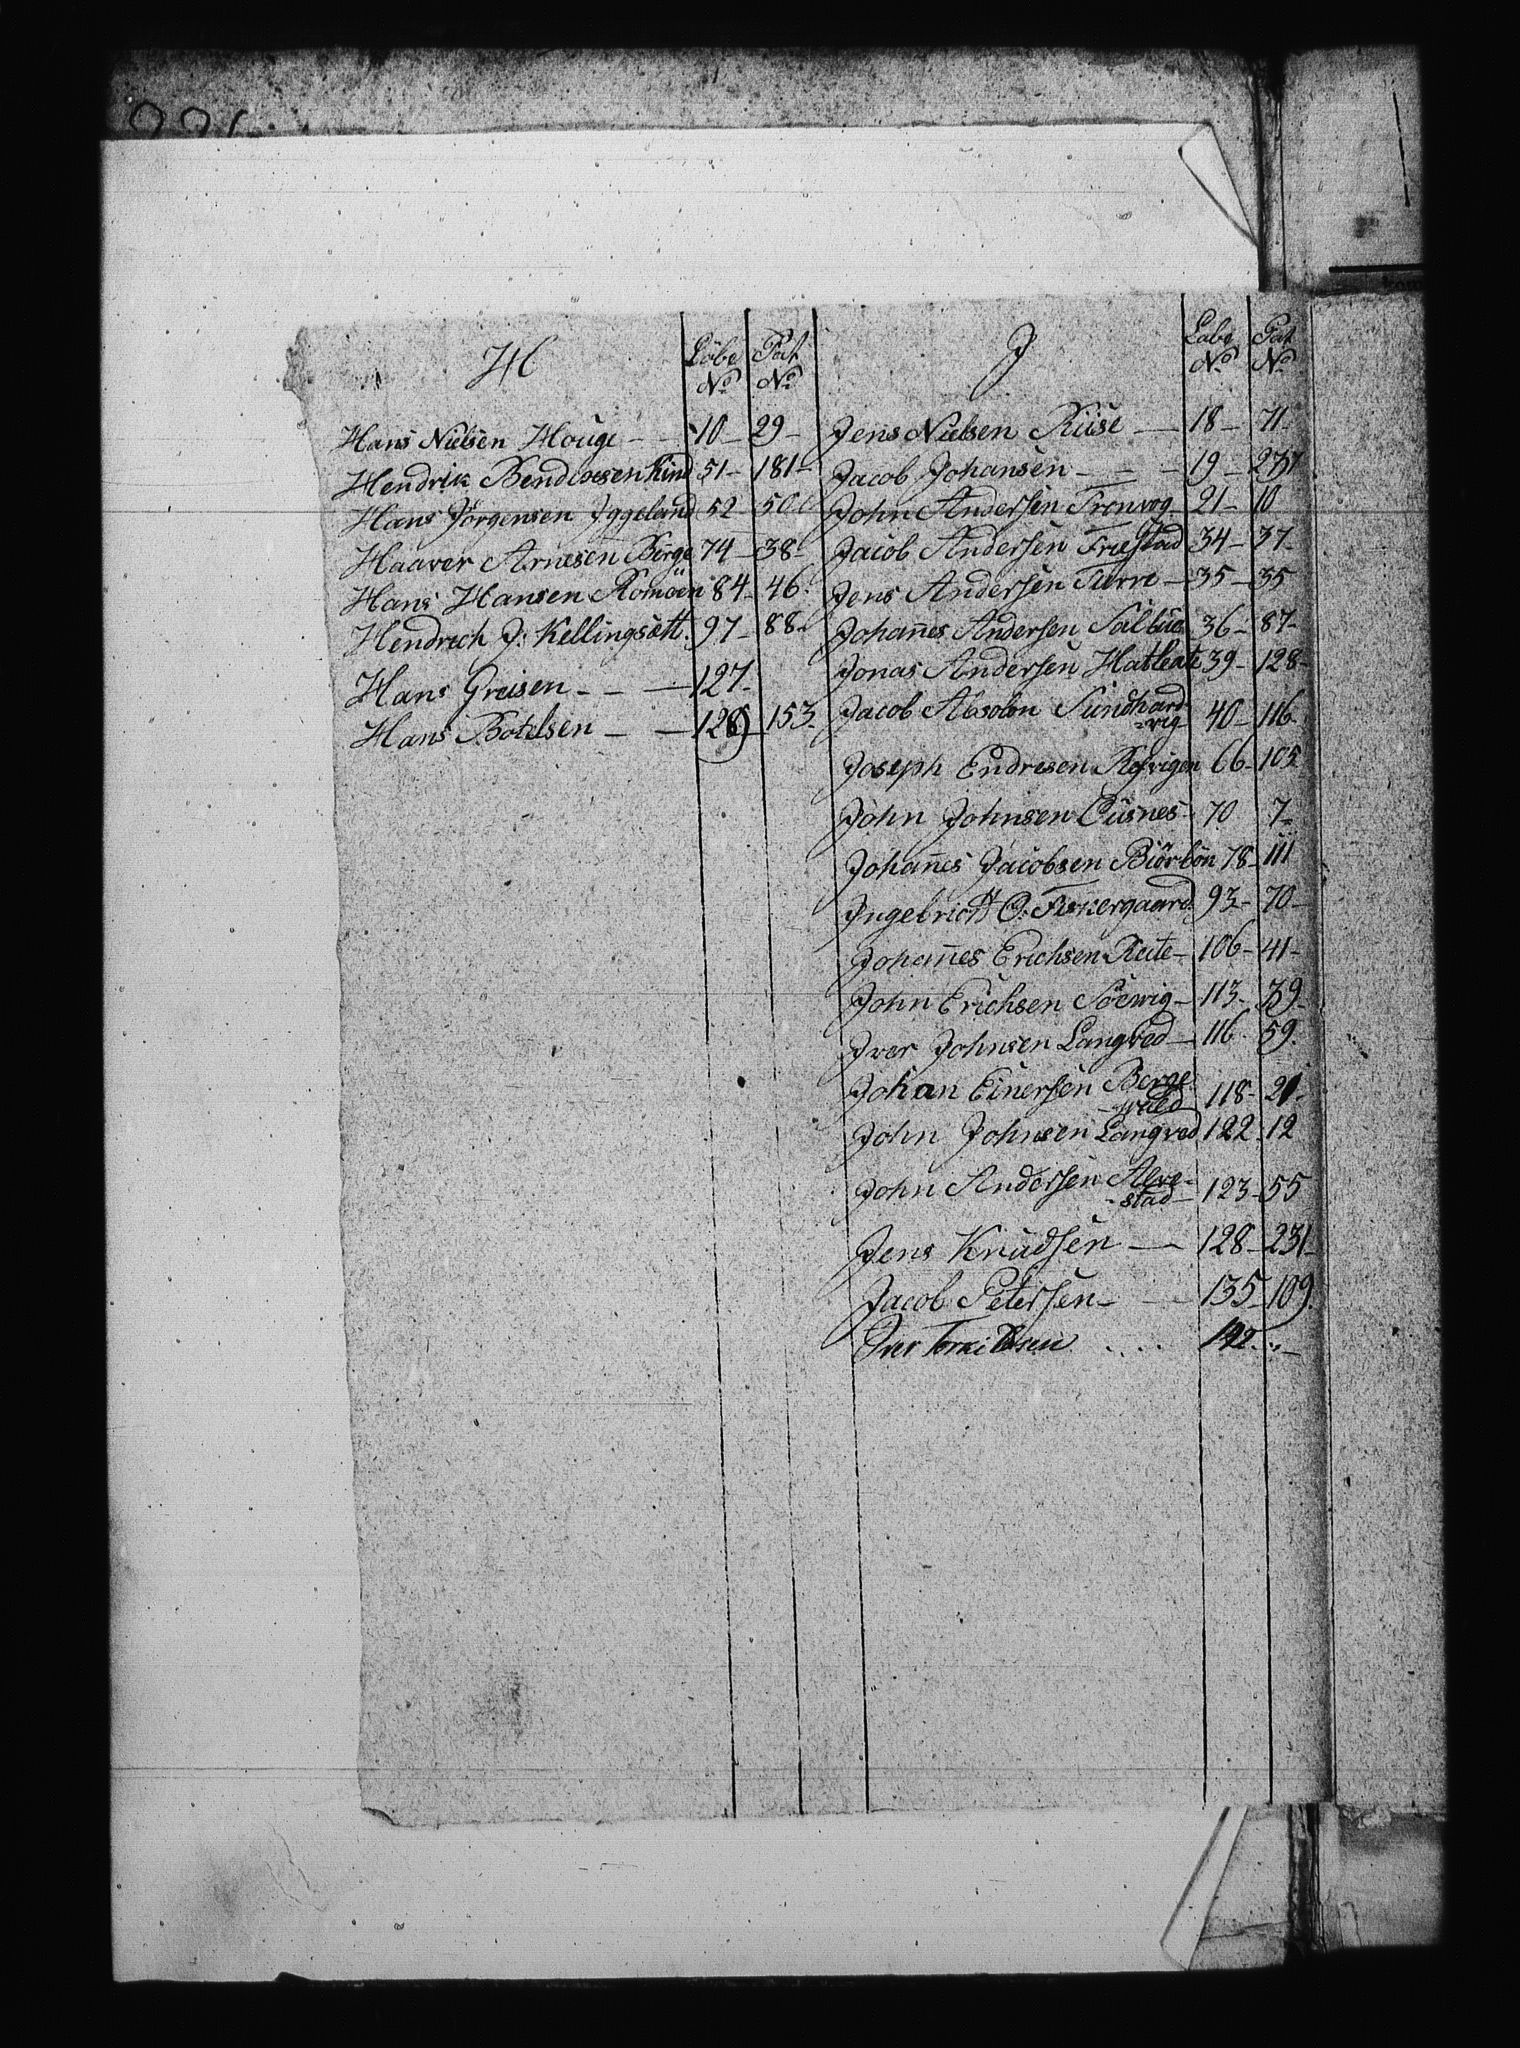 H Löbe No Pat No
Hans Nielsen Houge - - 10 - 29 -
Hendrik Bendixsen Kind 51 - 181 -
Hans Jörgensen Iggeland 52 - 50
Haaver Arnesen Berge 74 - 38
Hans Hansen Romöen 84 - 46
Hendrich J: Kellingsætt. 97 - 88 -
Hans Greisen - - - 127 -
Hans Botelsen - - 128 - 153
J Löbe No Pat No
Jens Nielsen Riise - 18 - 71
Jacob Johansen - - - 19 - 237
John Andersen Tronvog 21 - 10
Jacob Andersen Friestad 34 - 37 -
Jens Andersen Turre - 35 - 35
Johan̄es Andersen Salbue 36 - 87 -
Jonas Andersen Hatleate 39 - 128 -
Jacob Absolon Sundhard
-vig 40 - 116
Joseph Endresen Refvigen 66 - 105
John Johnsen Ousnes - 70 7 -
Johan̄es Jacobsen Biörlön 78 - 111
Ingebricht O: Fiskergaard. 93 - 70 -
Johan̄es Erichsen Reite - 106 - 41 -
John Erichsen Söewig - 113 - 39 -
Iver Johnsen Langved - 116 - 59.
Johan Einersen Berge
-wald 118 - 21 -
John Johnsen Langved 122 - 12
John Andersen Alve-
-stad - 123 - 55
Jens Knudsen - 128 - 231 -
Jacob Petersen - - 135 - 109.
Iver .... 142 .. -